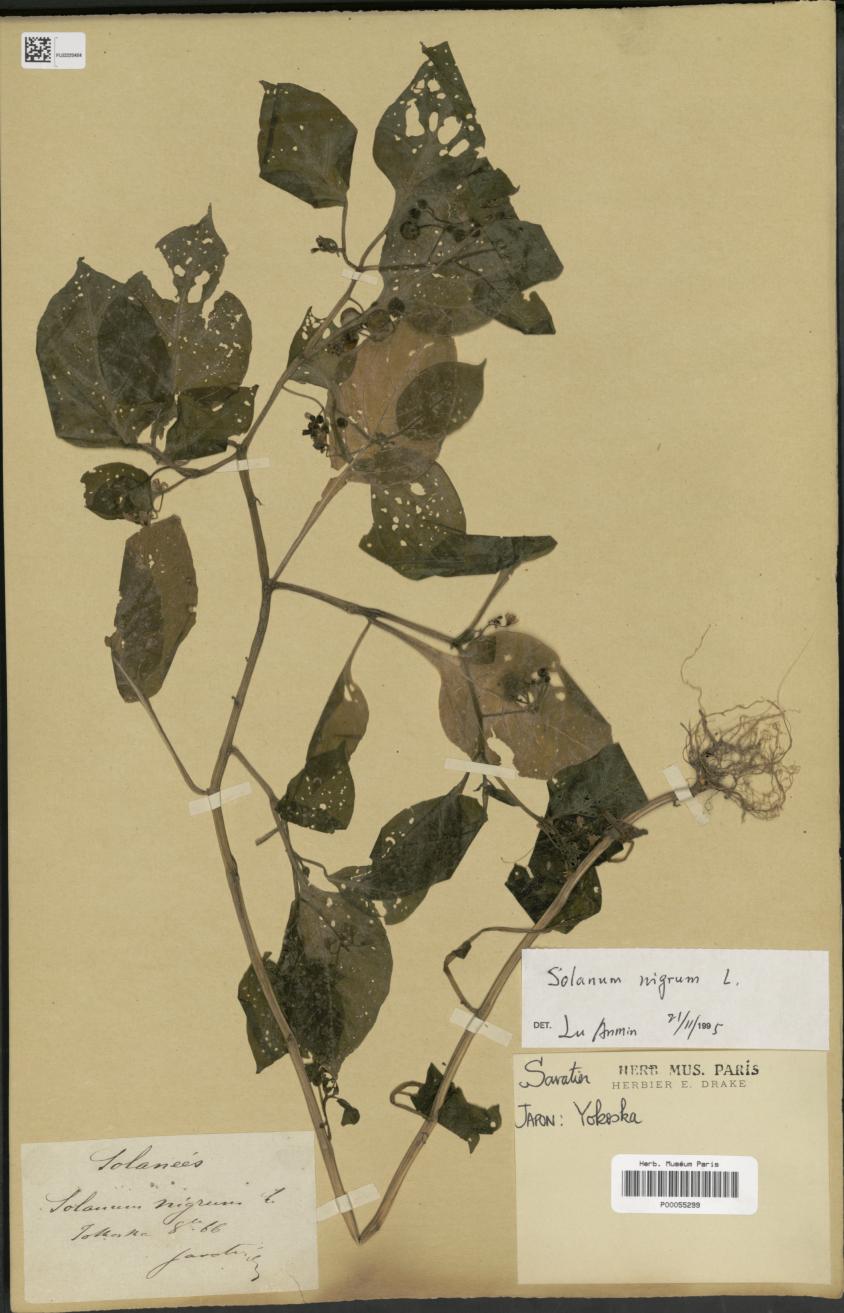 Solanum nigrum L.
DET. Lu Anmin 21/11/1995
Savatier HERB MUS. PARIS
HERBIER E. DRAKE
JAPON: Yokoska
Herb. Muséum Paris
P00055299
Solaneés
Solanum nigrum L.
Yokoska 8bre 66
Savatier